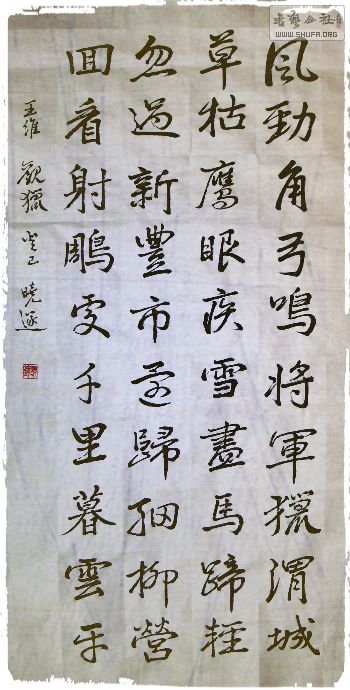 風勁角弓鳴將軍獵渭城
草枯鷹眼疾雪盡馬蹄輕
忽過新豐市還歸細柳營
回看射鵰處千里暮雲平
王維 觀獵 癸巳 曉逐
書藝公社
WWW.SHUFA.ORG